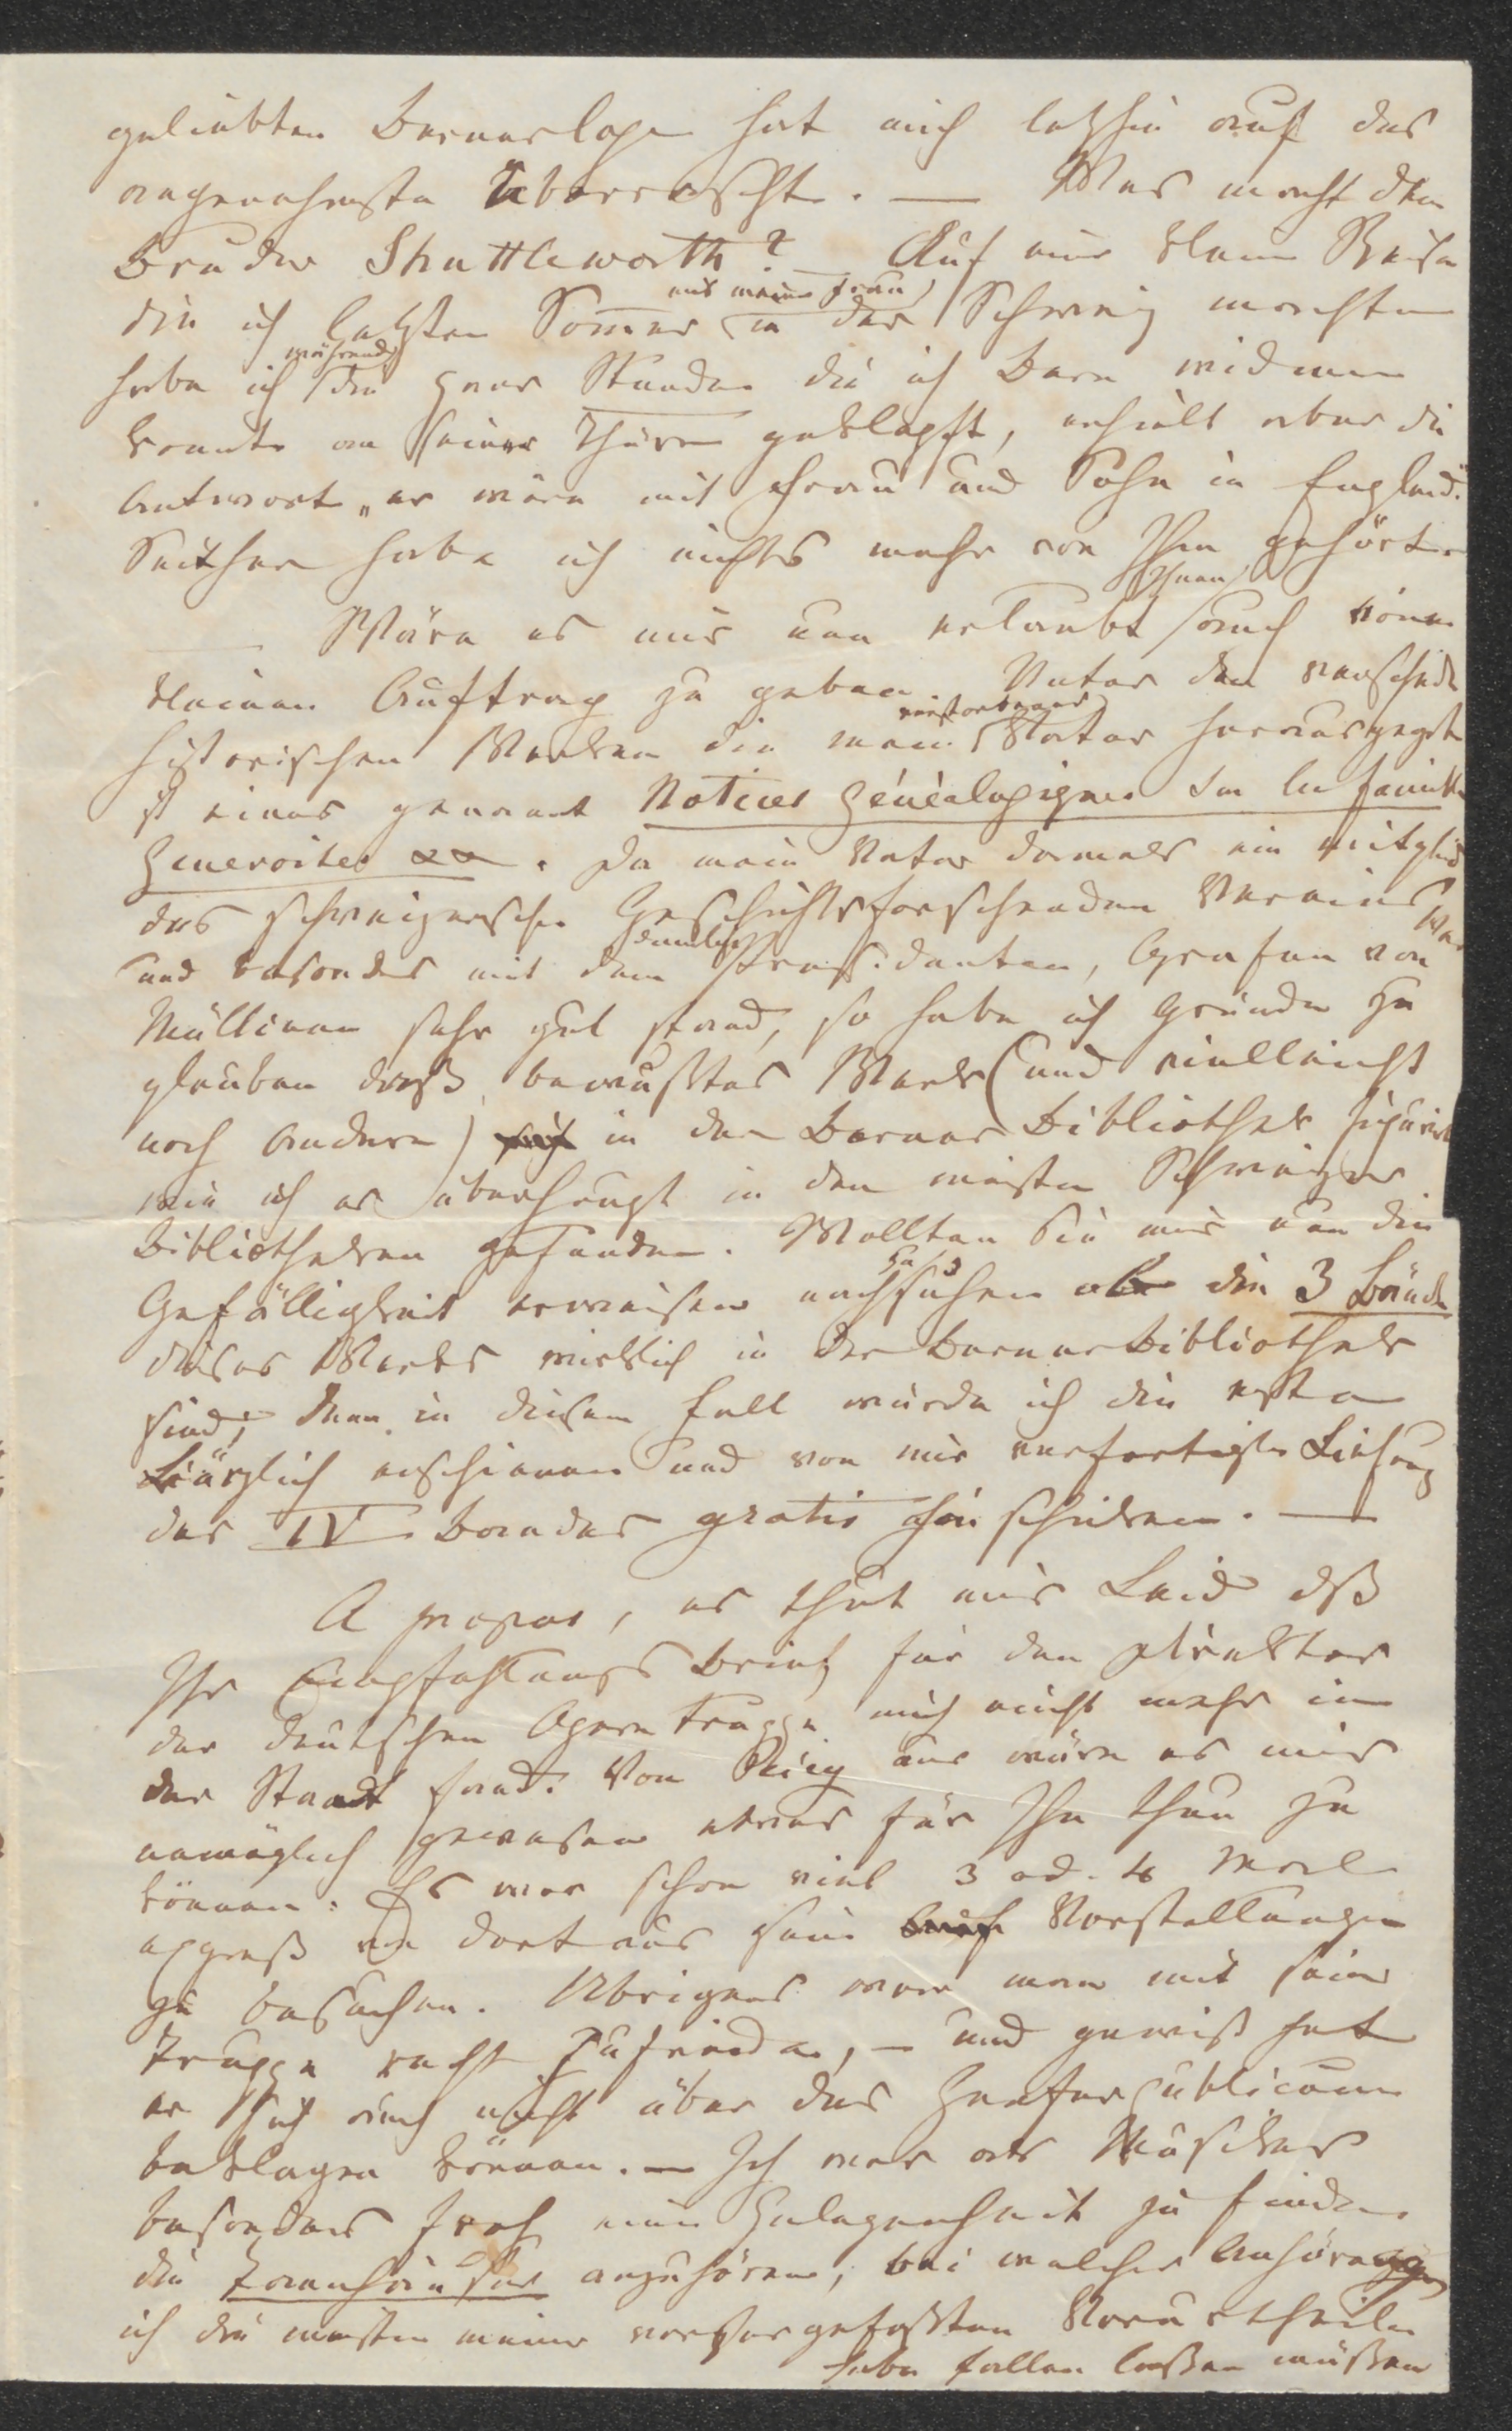 geliebten Bernerloge hat mich letzthin auf das
angenehmste überrascht. — Was macht den
Bruder Shuttleworth? — Auf eine kleine Reise
die ich letzten Sommer mit meiner Frau in der Schweiz machte
habe ich während die paar Stunden die ich Bern widmen
konnte an seiner Thüre geklopft, erhielt aber die
Antwort „er wäre mit Frau und Sohn in England."
Seither habe ich nichts mehr von Ihm gehört.
— Wäre es mir nun erlaubt Ihnen auch einen
kleinen Auftrag zu geben. Unter den verschied.
historischen Werken die mein verstorbener Vater herausgegeb
ist eines genannt Notices Généalogiques sur les familles
Genevoises &&. Da mein Vater damals ein Mitglied
des schweizerschen Geschichtsforschenden Vereins war
und besonders mit dem damaligen Presidenten, Grafen von
Müllinen sehr gut stand, so habe ich Gründe zu
glauben daß bewußtes Werk (und vielleicht
noch andere) in der Berner Bibliothek figurirt
wie ich es überhaupt in den meisten Schweizer
Bibliotheken gefunden. Wollten Sie mir nun die
Gefälligkeit erweisen nachzusuchen ob die 3 Bände
dieses Werks wirklich in der Berner Bibliothek
sind; denn in diesem Fall würde ich die erste
kürzlich erschienene und von mir verfertigte Lieferung
des IV Bandes gratis hin schicken. —
A propos, es thut mir Leid dß
Ihr Empfehlungs Brief für den Direktor
der deutschen Opern Truppe mich nicht mehr in
der Stadt fand. Von aus wäre es mir
unmöglich gewesen etwas für Ihn thun zu
können. Es war schon viel 3 od. 4 Mal
expreß von dort aus seine Vorstellungen
zu besuchen. Übrigens war man mit seiner
Truppe recht zufrieden, — und gewiß hat
er sich auch nicht über das Genfer publicum
beklagen können. — Ich war als Musiker
besonders froh eine Gelegenheit zu finden
die Tannhäuser anzuhören, bei welcher Anhörung
ich die meisten meiner vorher gefaßten Vorurtheile
habe fallen laßen müßen